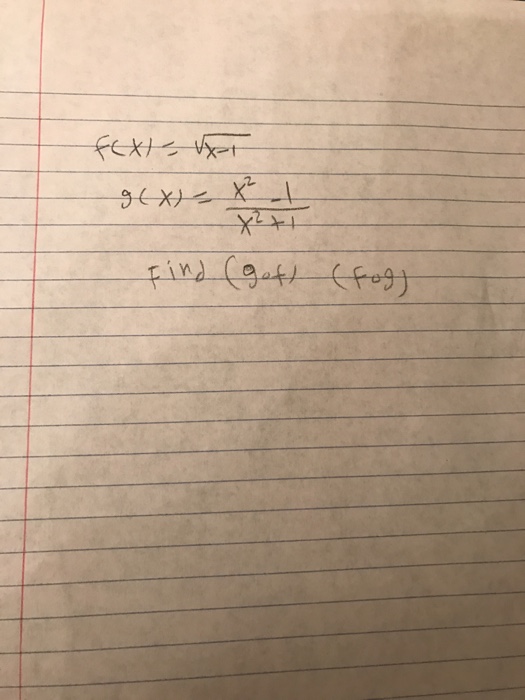 f(x) = √x-1
g(x) = x² - 1 / x² + 1
Find (gof) (fog)